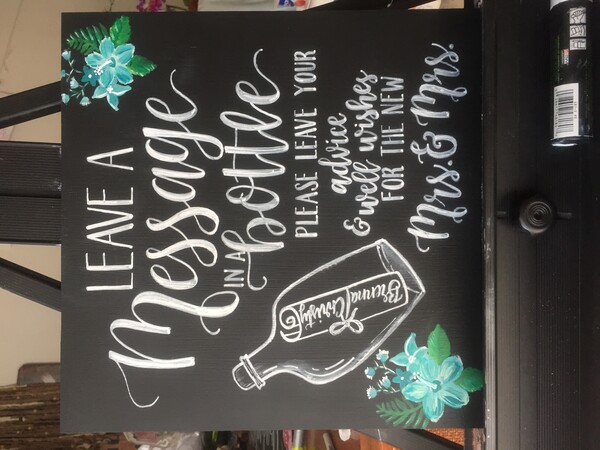 LEAVE A
Message
IN A
bottle
PLEASE LEAVE YOUR
advice
& well wishes
FOR THE NEW
Mrs. & Mrs.
Brenna
Christy